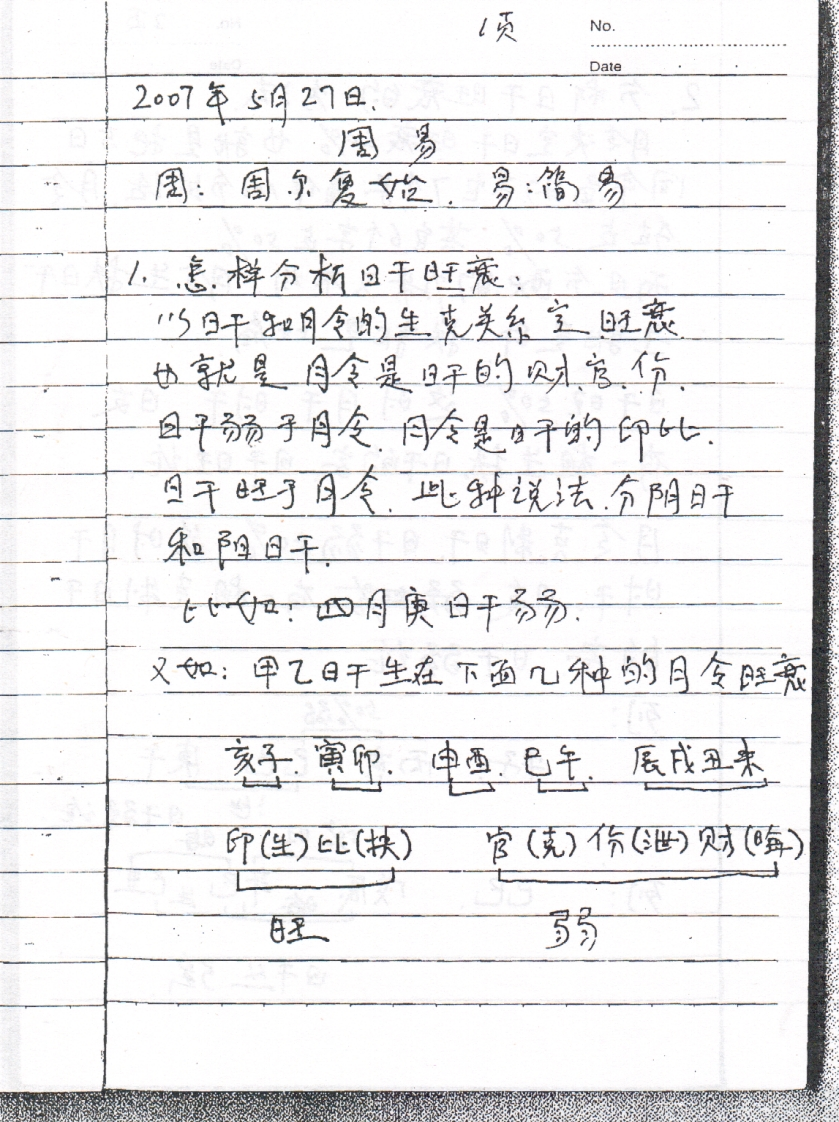 1页
No.
Date
2007年5月27日.
周易
周：周尔复始. 易：简易
1. 怎样分析日干旺衰.
以日干和月令的生克关系定旺衰
也就是月令是日干的财.官.份.
日干弱于月令.月令是日干的印比.
日干旺于月令.此种说法.分阴日干
和阳日干.
比如：四月庚日干弱.
又如：甲乙日干生在下面几种的月令旺衰
亥子 寅卯. 申酉. 巳午. 辰戌丑未
印(生)比(扶) 官(克)份(泄)财(晦)
旺 弱